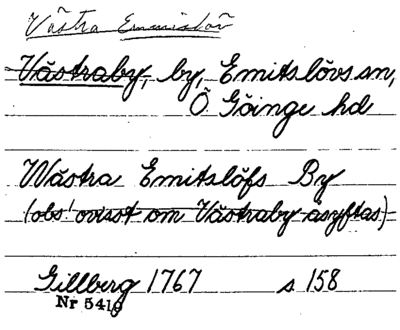 Västra Emmislöv
Västraby, by, Emitslövs sn,
Ö. Göinge hd
Wästra Emitslöfs By
(obs! ovisst om Västraby åsyftas)
Gillberg 1767 s 158
Nr 5419